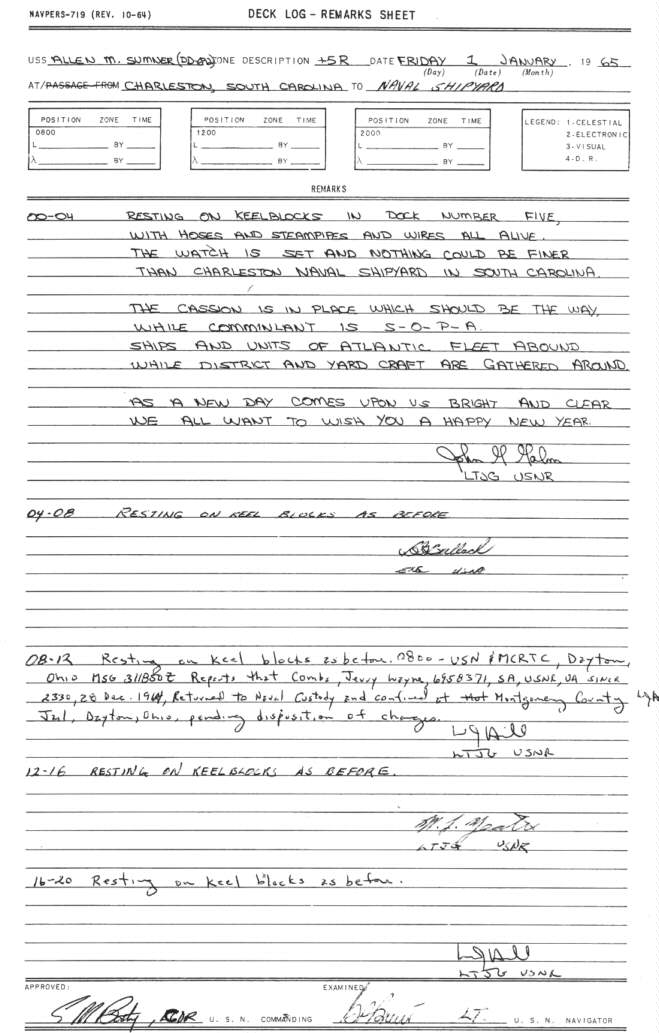 NAVPERS-719 (REV. 10-64)
DECK LOG – REMARKS SHEET
USS ALLEN M. SUMNER (DD-692) ZONE DESCRIPTION +5R DATE FRIDAY 1 JANUARY, 19 65
(Day) (Date) (Month)
AT/PASSAGE FROM CHARLESTON, SOUTH CAROLINA TO NAVAL SHIPYARD
POSITION ZONE TIME
0800
L BY
λ BY
POSITION ZONE TIME
1200
L BY
λ BY
POSITION ZONE TIME
2000
L BY
λ BY
LEGEND: 1-CELESTIAL
2-ELECTRONIC
3-VISUAL
4-D. R.
REMARKS
00-04 RESTING ON KEELBLOCKS IN DOCK NUMBER FIVE,
WITH HOSES AND STEAMPIPES AND WIRES ALL ALIVE.
THE WATCH IS SET AND NOTHING COULD BE FINER
THAN CHARLESTON NAVAL SHIPYARD IN SOUTH CAROLINA.
THE CASSION IS IN PLACE WHICH SHOULD BE THE WAY,
WHILE COMMINLANT IS S-O-P-A.
SHIPS AND UNITS OF ATLANTIC FLEET ABOUND
WHILE DISTRICT AND YARD CRAFT ARE GATHERED AROUND.
AS A NEW DAY COMES UPON US BRIGHT AND CLEAR
WE ALL WANT TO WISH YOU A HAPPY NEW YEAR.
John
LTJG USNR
04-08 RESTING ON KEEL BLOCKS AS BEFORE
ENS USNR
08-12 Resting on keel blocks as before. 0800 - USN & MCRTC, Dayton,
Ohio MSG 311850Z Reports that Combs, Jerry Wayne, 6958371, SA, USNR, UA since
2330, 28 Dec. 1964, Returned to Naval Custody and confined at Montgomery County
Jail, Dayton, Ohio, pending disposition of charges.
LTJG USNR
12-16 RESTING ON KEELBLOCKS AS BEFORE.
LTJG USNR
16-20 Resting on keel blocks as before.
LTJG USNR
APPROVED:
EXAMINED:
LCDR U. S. N. COMMANDING
LT U. S. N. NAVIGATOR